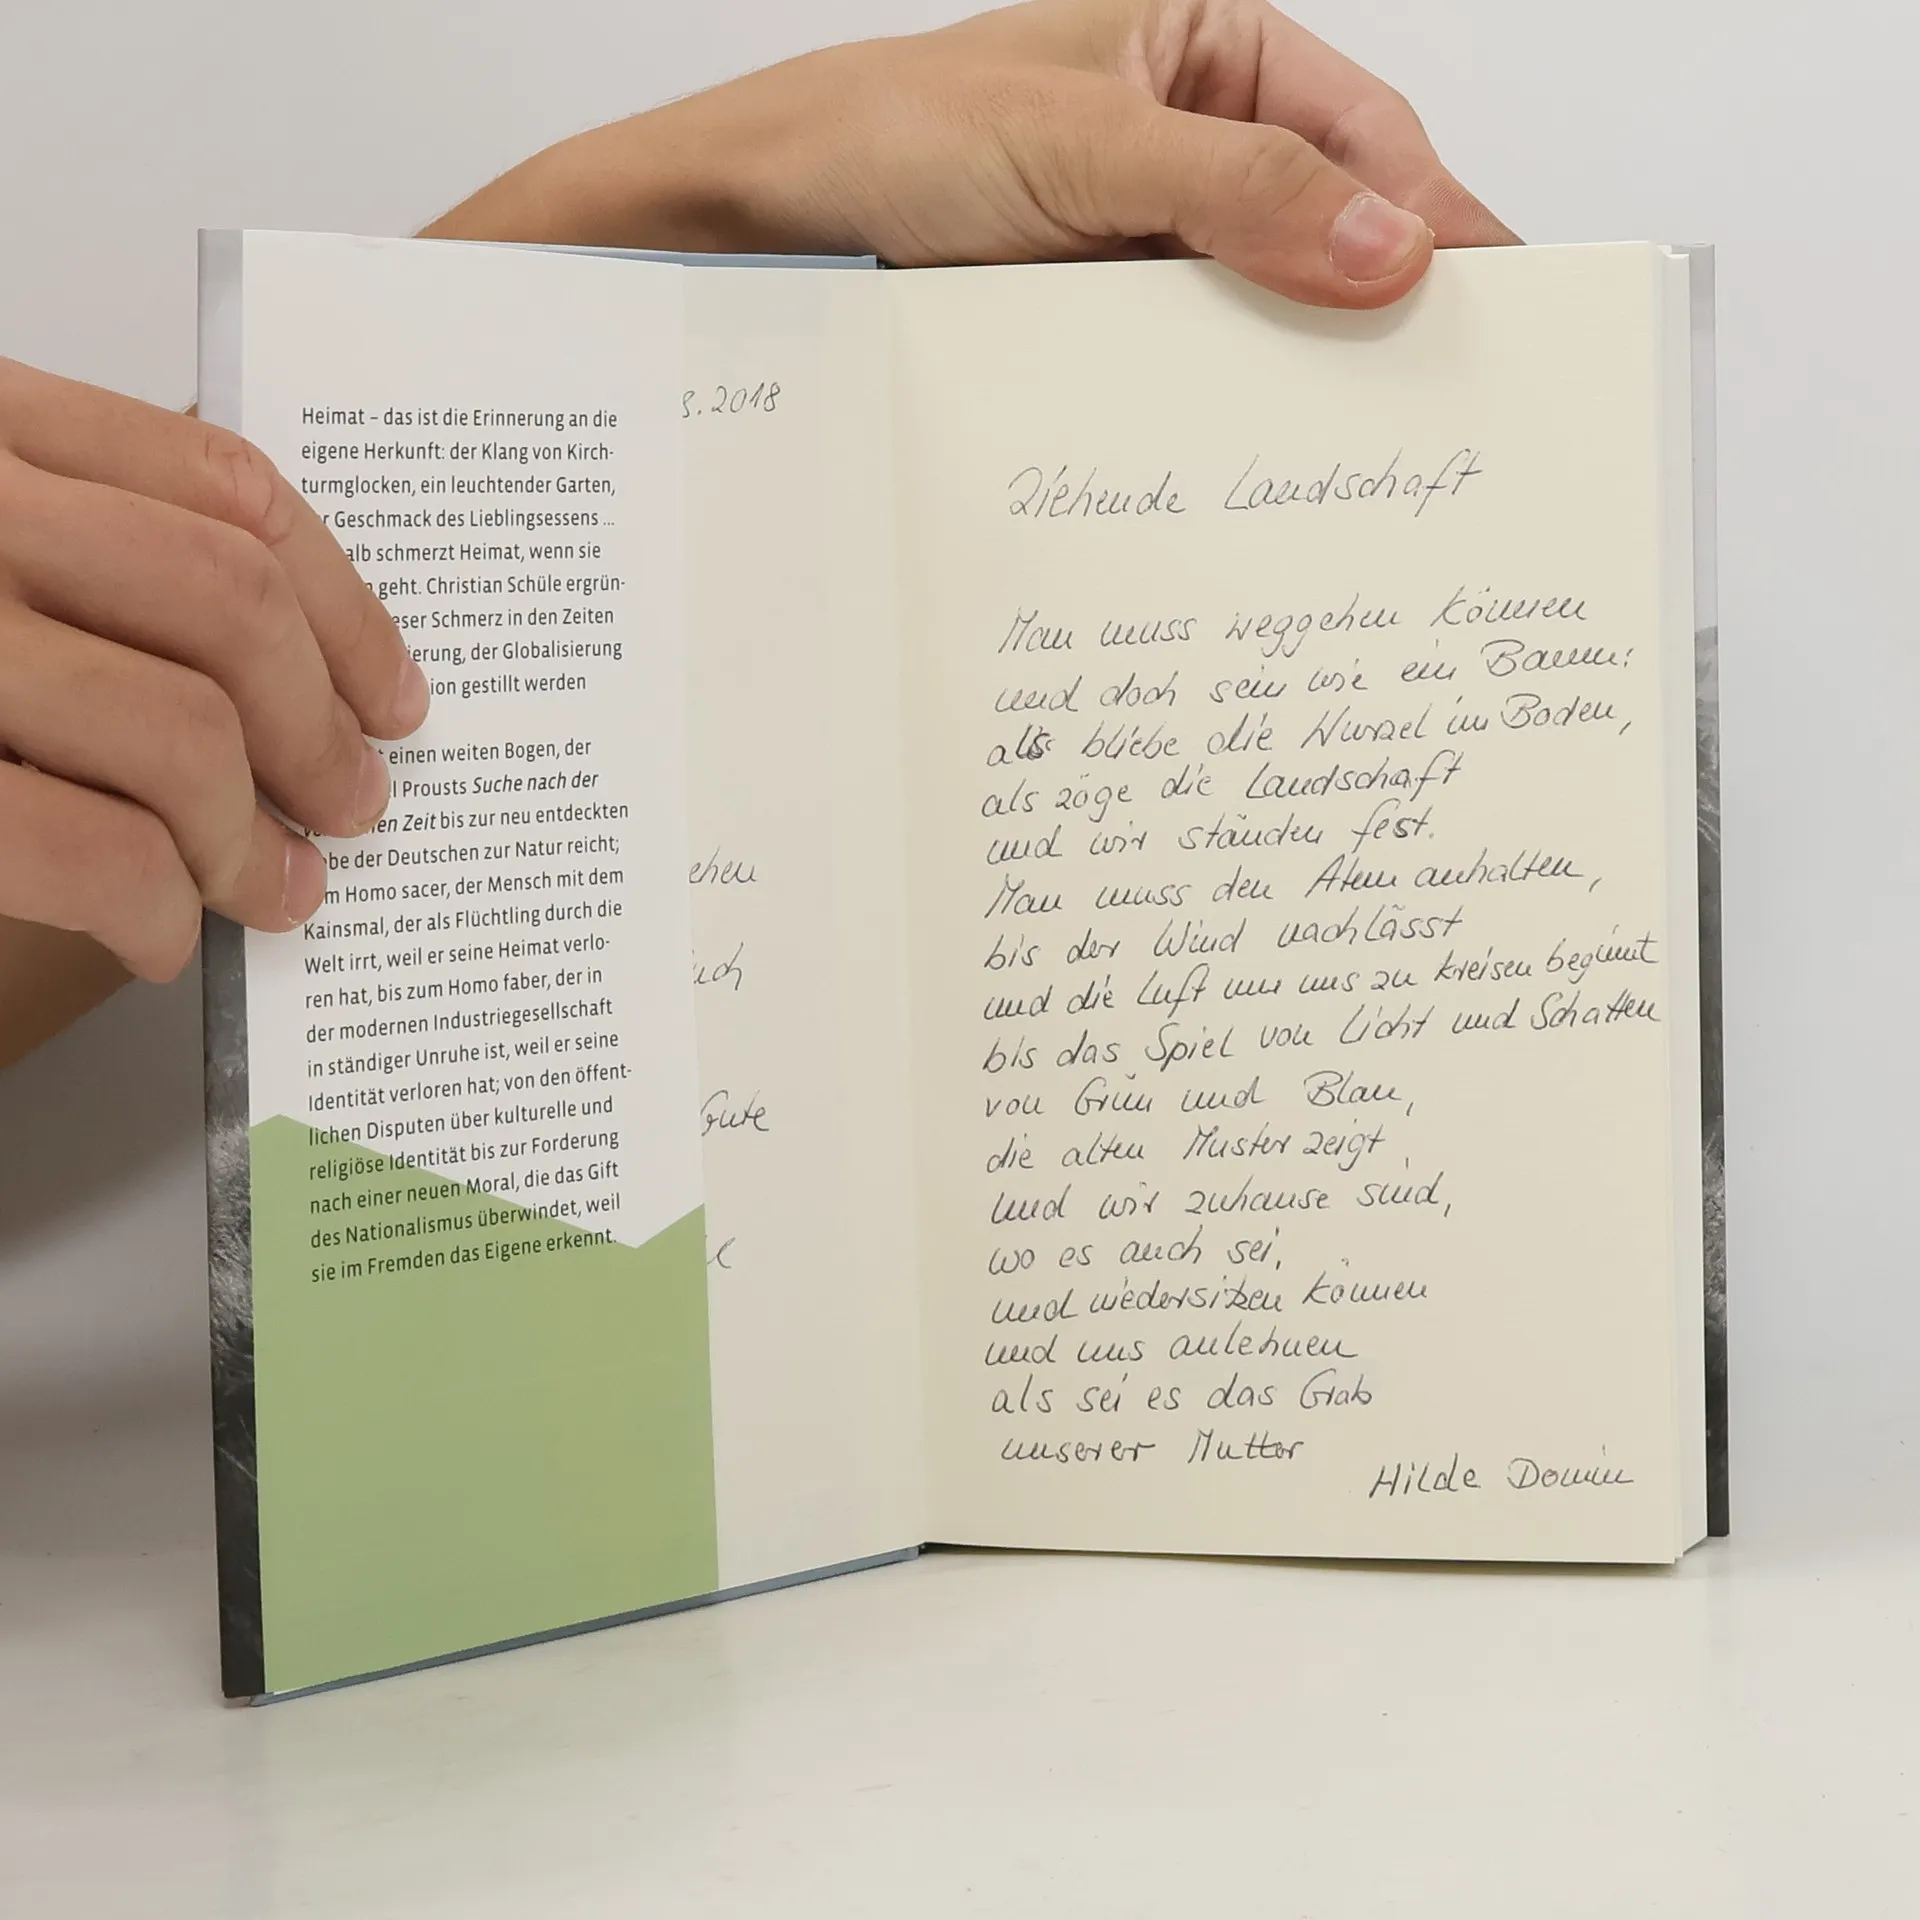 Heimat – das ist die Erinnerung an die
eigene Herkunft: der Klang von Kirch-
turmglocken, ein leuchtender Garten,
r Geschmack des Lieblingsessens ...
alb schmerzt Heimat, wenn sie
geht. Christian Schüle ergrün-
eser Schmerz in den Zeiten
ierung, der Globalisierung
ion gestillt werden
einen weiten Bogen, der
l Prousts Suche nach der
en Zeit bis zur neu entdeckten
be der Deutschen zur Natur reicht;
m Homo sacer, der Mensch mit dem
Kainsmal, der als Flüchtling durch die
Welt irrt, weil er seine Heimat verlo-
ren hat, bis zum Homo faber, der in
der modernen Industriegesellschaft
in ständiger Unruhe ist, weil er seine
Identität verloren hat; von den öffent-
lichen Disputen über kulturelle und
religiöse Identität bis zur Forderung
nach einer neuen Moral, die das Gift
des Nationalismus überwindet, weil
sie im Fremden das Eigene erkennt.
8.2018
ehen
uch
Gute
Ziehende Landschaft
Man muss weggehen können
und doch sein wie ein Baum:
als bliebe die Wurzel im Boden,
als zöge die Landschaft
und wir ständen fest.
Man muss den Atem anhalten,
bis der Wind nachlässt
und die Luft um uns zu kreisen beginnt
bis das Spiel von Licht und Schatten
von Grün und Blau,
die alten Muster zeigt
und wir zuhause sind,
wo es auch sei,
und niedersitzen können
und uns anlehnen
als sei es das Grab
unserer Mutter
Hilde Domin